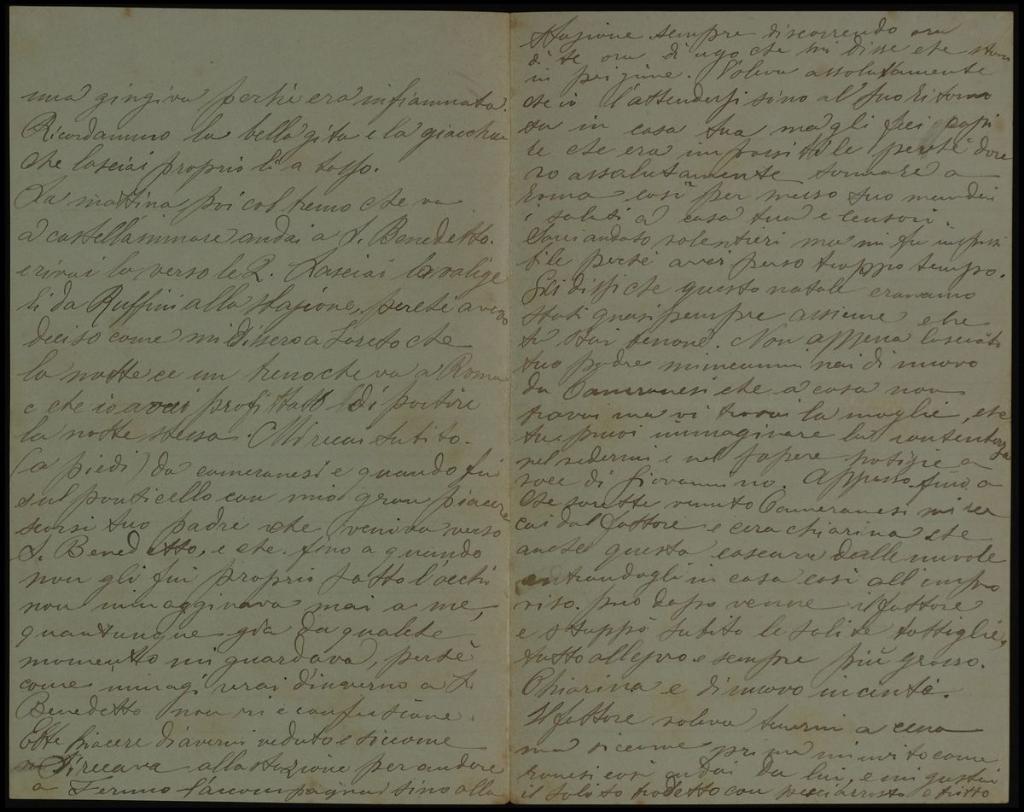 una gingiva perchè era infiammata.
Ricordammo la bella gita e la giacchia
che lasciai proprio lì a
La mattina poi col treno che va
a castellammare andai a S. Benedetto.
arivai la verso le 2. Lasciai la valige
ti da Ruffini alla stazione, perchè avevo
deciso come mi dissero a Loreto che
la notte ce un treno che va a Roma
e che io avrei profittato di partire
la notte stessa. Mi recai subito.
(a piedi) da cameranesi e quando fui
sul ponticello con mio gran piacere
scorsi tuo padre che veniva verso
S. Benedetto, e che fino a quando
non gli fui proprio sotto l'occhi
non immagginava mai a me,
quantunque già da qualche
momento mi guardava, perchè
come immaginerai d'inverno a S.
Benedetto non vi e confusione.
Ebbe piacere d'avermi veduto e siccome
si recava alla stazione per andare
a Fermo l'accompagnai sino alla
stazione sempre discorrendo ora
di te ora di ugo che mi disse che stava
in peigione. Voleva assolutamente
che io l'attendessi sino al suo ritorno
in casa tua ma gli feci capi
re che era impossibile perchè dove
vo assolutamente tornare a
Roma così per mezzo suo mandai
i saluti a casa tua e Censori.
Sarei andato volentieri ma mi fu impossi
bile perchè avrei perso troppo tempo.
Gli dissi che questo natale eravamo
stati quasi sempre assieme e che
ti stai benone. Non appena lasciato
tuo padre mincamminai di nuovo
da Cameranesi che a casa non
trovai ma vi trovai la moglie, che
tu puoi immaginare la contentezza
nel vedermi e nel sapere notizie a
voce di Giovannino. Appresso fino a
che sarette venuto Cameranesi mi re
cai dal fattore e cera chiarina che
anche questa cascava dalle nuvole
entrandogli in casa così all'impro
viso. poco dopo venne il fattore
e stuppò subito le solite bottiglie,
tutto allegro e sempre più grosso.
Chiarina e di nuovo incinta.
Il fattore voleva tenermi a cena
ma siccome prima m'invitò came
ranesi così andai da lui, e mi gustai
il solito brodetto con pesce arrosto e fritto